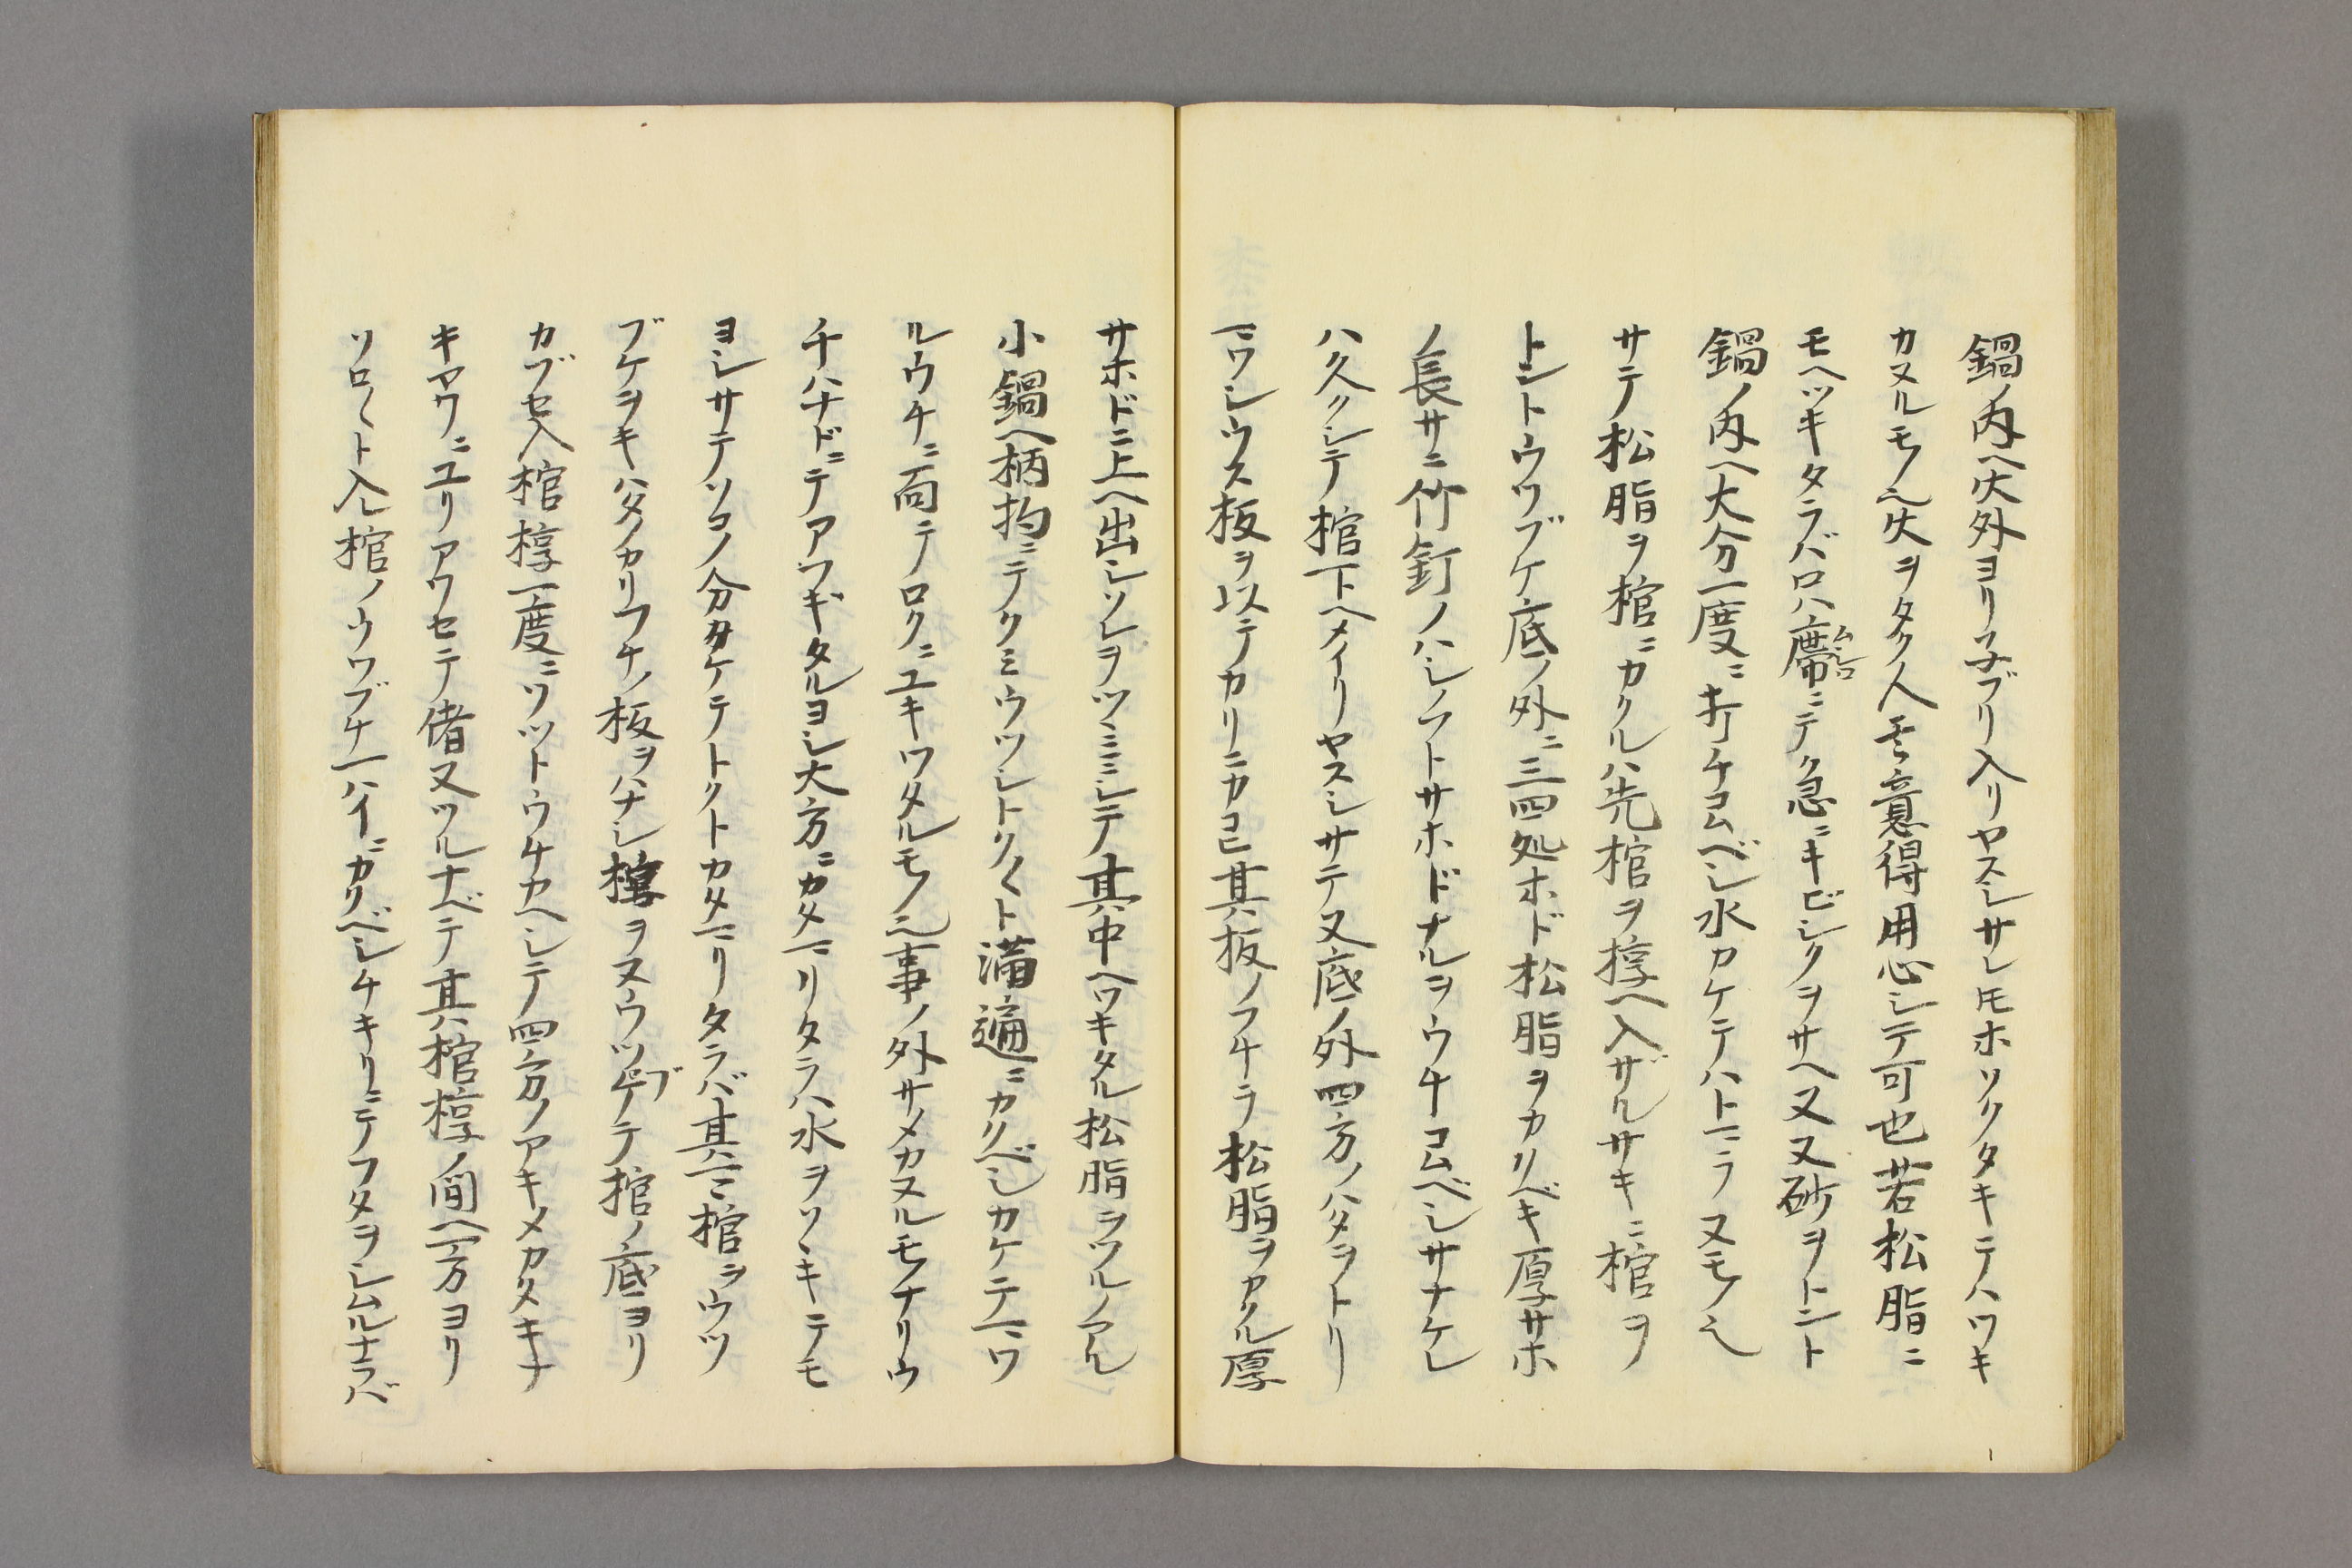 鍋ノ内ヘ火外ヨリ子ブリ入リヤスシサレ𪜈ホソクタキテハツキ
カヌルモノ也火ヲタク人モ意得用心シテ可也若松脂ニ
モヘツキタラバロハ席ムシロニテク急ニキビシクヲサヘ又又砂ヲトント
鍋ノ内ヘ大分一度ニ打ケコムベシ水カケテハトマラヌモノ也
サテ松脂ヲ棺ニカクルハ先棺ヲ椁ヘ入ザルサキニ棺ヲ
トントウツブケ底ノ外ニ三四処ホド松脂ヲカクベキ厚サホ
ノ長サニ竹釘ノハシノフトサホドナルヲウチコムベシサナケレ
ハ久クシテ棺下ヘメイリヤスシサテ又底ノ外四方ノハタヲトリ
マワシウス板ヲ以テカリニカコヒ其板ノフチヲ松脂ヲカクル厚
サホドニ上ヘ出シソレヲツヽミニシテ其中ヘワキタル松脂ヲツルノアル
小鍋ヘ柄杓ニテクミウツシトク〱ト満遍ニカクベシカケテマワ
ルウチニ而テノロクニユキワタルモノ也事ノ外サメカヌルモノナリウ
チハナドニテアフギタルヨシ大方ニカタマリタラハ水ヲソヽキテモ
ヨシサテソコノ分カケテトクトカタマリタラバ其マヽ棺ヲウツ
ブケヲキハタノカリフチノ板ヲハナシ椁ヲヌウツブケテ棺ノ底ヨリ
カブセ入棺椁一度ニソツトウチカヘシテ四方ノアキメカタキナ
キヤウニユリアワセテ偖又ツルナベテ其棺椁ノ間ヘ一方ヨリ
ソロ〱ト入レ棺ノウワブチ一ハイニカクベシチキリニテフタヲシムルナラバ